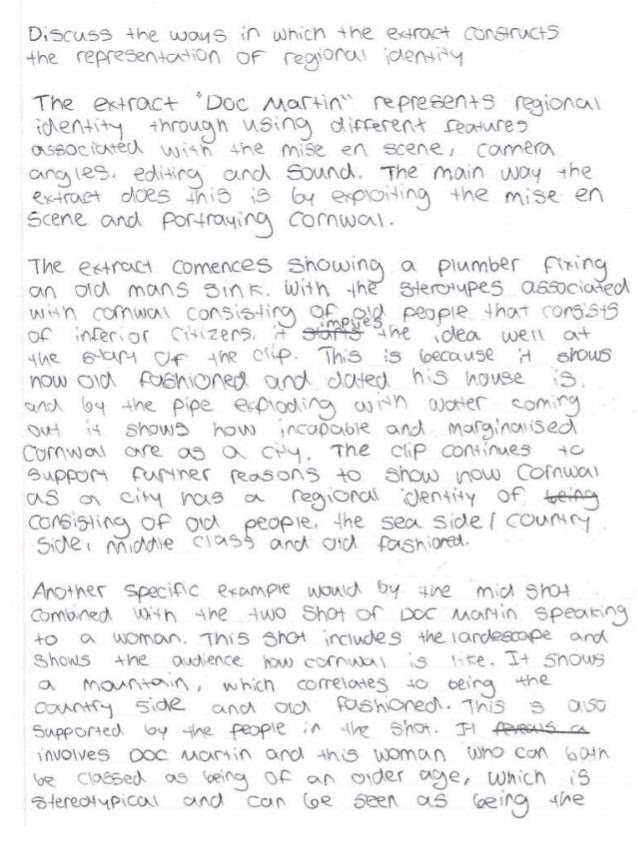 Discuss the ways in which the extract constructs
the representation of regional identity
The extract "Doc Martin" represents regional
identity through using different features
associated with the mise en scene, camera
angles, editing and sound. The main way the
extract does this is by exploiting the mise en
scene and portraying cornwal.
The extract comences showing a plumber fixing
an old mans sink. With the sterotypes associated
with cornwal consisting of old people that consists
of inferior citizens, it starts implies the idea well at
the start of the clip. This is because it shows
how old fashioned and dated his house is,
and by the pipe exploding with water coming
out it shows how incapable and marginalised
Cornwal are as a city. The clip continues to
support further reasons to show how Cornwal
as a city has a regional identity of being
consisting of old people, the sea side/country
side, middle class and old fashioned.
Another specific example would by the mid shot
combined with the two shot of Doc Martin speaking
to a woman. This shot includes the landescape and
shows the audience how cornwal is like. It shows
a mountain, which correlates to being the
country side and old fashioned. This is also
supported by the people in the shot. It reveals a
involves Doc Martin and this woman who can both
be classed as being of an older age, which is
stereotypical and can be seen as being the